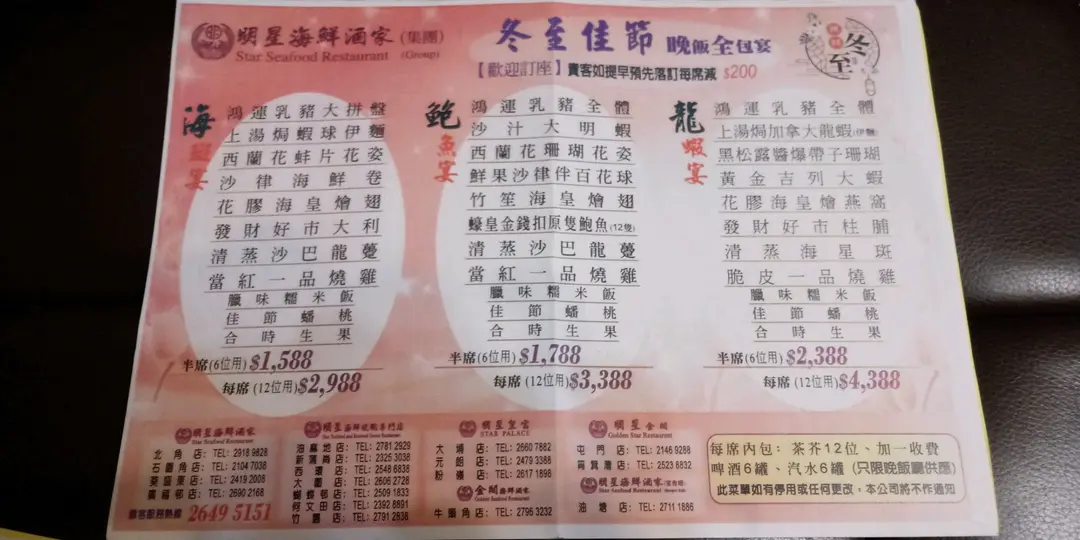 明星海鮮酒家(集團)
Star Seafood Restaurant (Group)
冬至佳節 晚飯全包宴
【歡迎訂座】貴客如提早預先落訂每席減 $200
冬至
海龍宴
鴻運乳豬大拼盤
上湯焗蝦球伊麵
西蘭花蚌片花姿
沙律海鮮卷
花膠海皇燴翅
發財好市大利
清蒸沙巴龍躉
當紅一品燒雞
臘味糯米飯
佳節蟠桃
合時生果
半席(6位用)$1,588
每席(12位用)$2,988
鮑魚宴
鴻運乳豬全體
沙汁大明蝦
西蘭花珊瑚花姿
鮮果沙律伴百花球
竹笙海皇燴翅
蠔皇金錢扣原隻鮑魚(12隻)
清蒸沙巴龍躉
當紅一品燒雞
臘味糯米飯
佳節蟠桃
合時生果
半席(6位用)$1,788
每席(12位用)$3,388
龍蝦宴
鴻運乳豬全體
上湯焗加拿大龍蝦(伊麵)
黑松露醬爆帶子珊瑚
黃金吉列大蝦
花膠海皇燴燕窩
發財好市柱脯
清蒸海星斑
脆皮一品燒雞
臘味糯米飯
佳節蟠桃
合時生果
半席(6位用)$2,388
每席(12位用)$4,388
明星海鮮酒家
Star Seafood Restaurant
北角店: TEL: 2918 9828
石圍角店: TEL: 2104 7038
葵盛東店: TEL: 2419 2008
廣福邨店: TEL: 2690 2168
顧客服務熱線 2649 5151
明星海鮮燒臘專門店
油麻地店: TEL: 2781 2929
新蒲崗店: TEL: 2325 3038
西環店: TEL: 2548 6838
大圍店: TEL: 2606 2728
蝴蝶邨店: TEL: 2509 1833
何文田店: TEL: 2392 8891
竹園店: TEL: 2791 2838
明星皇宮
STAR PALACE
大埔店: TEL: 2660 7882
元朗店: TEL: 2479 3388
粉嶺店: TEL: 2617 1898
金閣海鮮酒家
牛頭角店: TEL: 2796 3232
明星金閣
Golden Star Restaurant
屯門店: TEL: 2146 9288
筲箕灣店: TEL: 2523 6832
明星海鮮酒家
Star Seafood Restaurant
油塘店: TEL: 2711 1886
每席內包: 茶芥12位、加一收費
啤酒6罐、汽水6罐 (只限晚飯廳供應)
此菜單如有停用或任何更改,本公司將不作通知